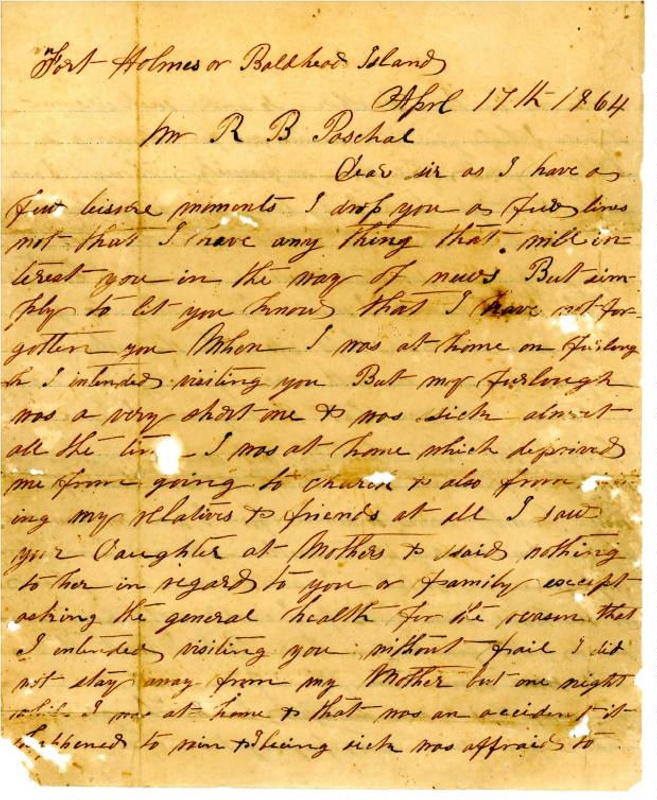 Fort Holmes or Baldhead Island
Aprl 17th 1864
Mr R B Paschal
Dear sir as I have a
few leisure moments I drop you a few lines
not that I have any thing that will in-
terest you in the way of news But sim-
ply to let you know that I have not for-
gotten you When I was at home on furloug
h I intended visiting you But my furlough
was a very short one & was sick almost
all the I was at home which deprived
me from going to church & also from
ing my relatives & friends at all I saw
your Daughter at Mothers & said nothing
to her in regard to you or family except
asking the general health for the reason that
I intended visiting you without fail I did
not stay away from my Mother but one night
while I was at home & that was an accident it
happened to rain & I being sick was affraid to